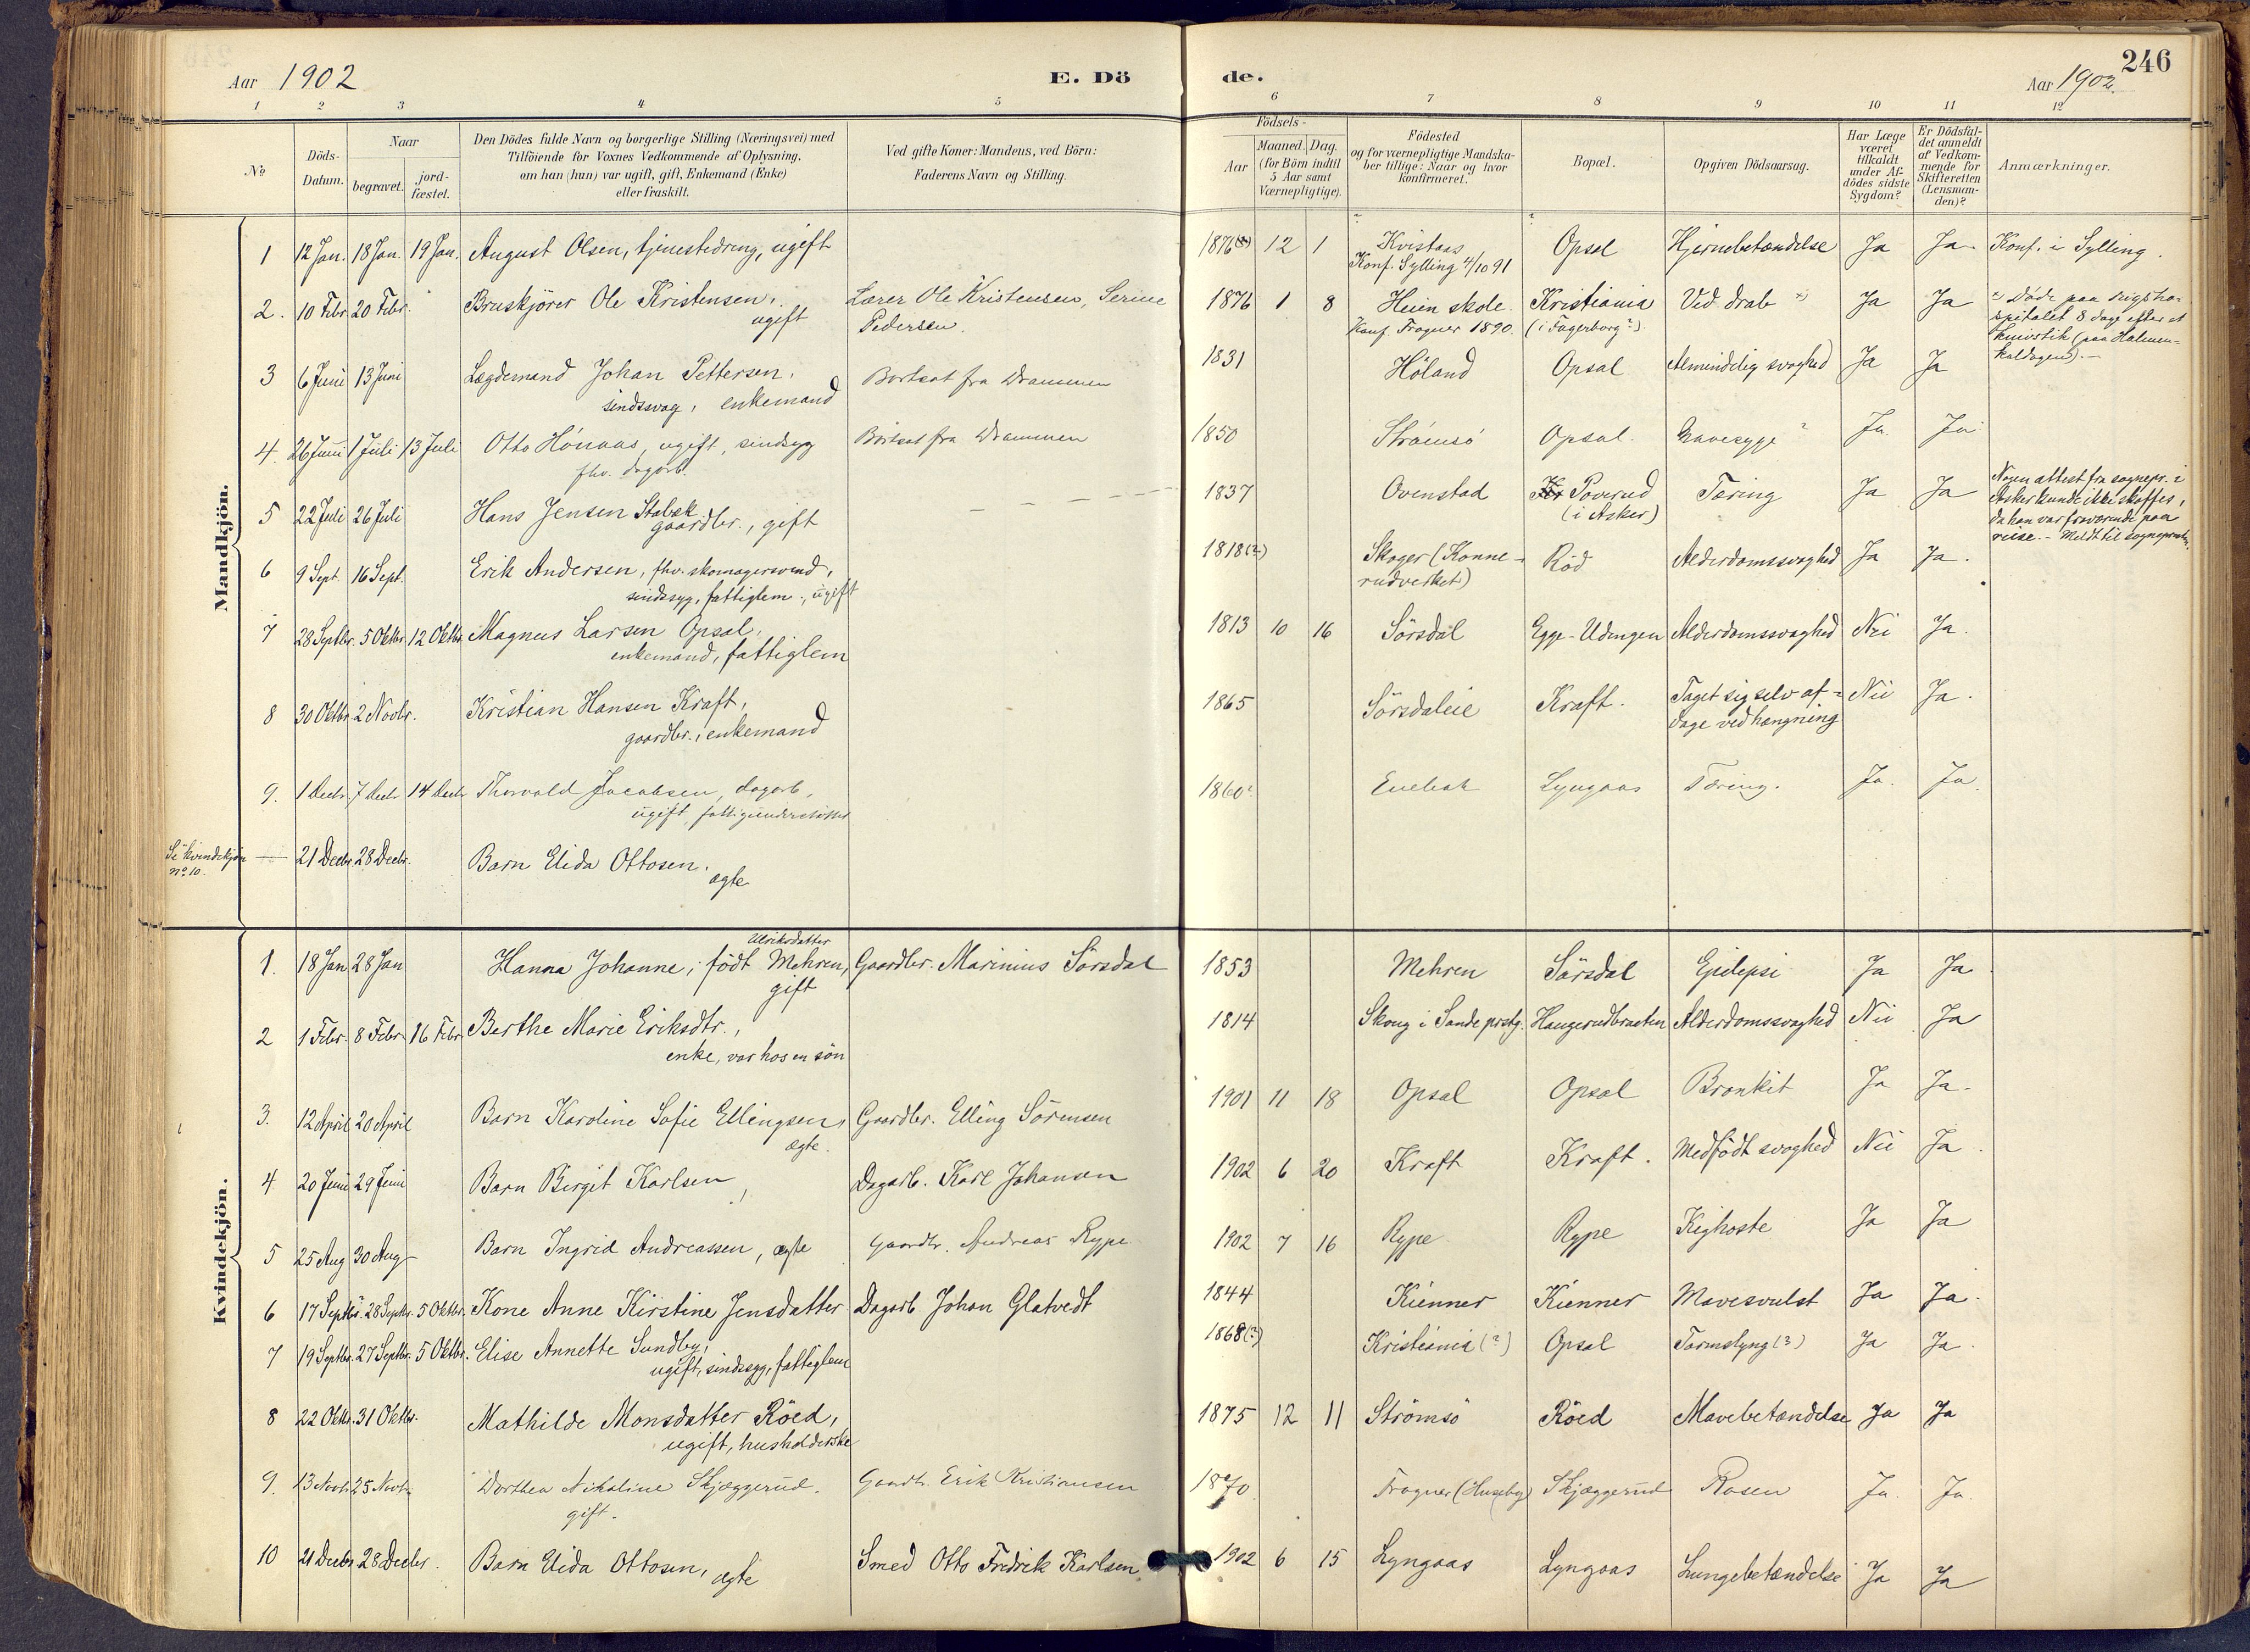 246
Aar 1902 E. Dö de. Aar 1902.
1 2 3 4 5 6 7 8 9 10 11 12
No
Döds-Datum.
Naar
begravet.
jord-fæstet.
Den Dödes fulde Navn og borgerlige Stilling (Næringsvei) med
Tilföiende for Voxnes Vedkommende af Oplysning,
om han (hun) var ugift, gift, Enkemand (Enke)
eller fraskilt.
Ved gifte Koner: Mandens, ved Börn:
Faderens Navn og Stilling.
Födsels-
Aar
Maaned. Dag.
(for Börn indtil
5 Aar samt
Værnepligtige).
Födested
og for værnepligtige Mandska-
ber tillige: Naar og hvor
konfirmeret.
Bopæl.
Opgiven Dödsaarsag.
Har Læge
været
tilkaldt
under Af-
dödes sidste
Sygdom?
Er Dödsfal-
det anmeldt
af Vedkom-
mende for
Skifteretten
(Lensman-
den)?
Anmærkninger.
Mandkjön.
1 12 Jan. 18 Jan. 19 Jan. August Olsen, tjenestedreng, ugift 1876 12 1 Kvistaas Opsal Hjernebetændelse Ja Ja. Konf. i Sylling.
Konf. Sylling 4/10 91
2. 10 Febr. 20 Febr. Bruskjörer Ole Kristensen, Lærer Ole Kristensen, Serine 1876 1 8 Heien skole Kristiania Ved drab Ja Ja Döde paa rigsho-
ugift Pedersen. Konf. Frogner 1890. (i Fagerborg?) spitalet 8 dage efter et
knivstik (paa Holmen-
koldagend).—
3 6 Juni 13 Juni Lægdemand Johan Pettersen, Bortsat fra Drammen 1831 Höland Opsal Almindelig svaghed Ja Ja
sindssvag, enkemand
4. 26 Juni 1 Juli 13 Juli Otto Hönaas, ugift, sindsyg Bortsat fra Drammen 1850 Strömsö Opsal. Mavesyge? Ja Ja
fhv. dagarb.
5 22 Juli 26 Juli Hans Jensen Stabæk 1837 Ovenstad Poverud Tæring Ja Ja Nogen attest fra sognepr. i
gaardbr., gift (i Asker) Asker kunde ikke skaffes,
da han var fraværende paa
reise. – Meldt til sogneprosten.
6 9 Sept. 16 Sept. Erik Andersen, fhv. skomagersvend, 1818(?) Skoger (Konne- Röd Alderdomssvaghed Ja Ja.
sindssyg, fattiglem, ugift rudverket)
7 28 Septbr. 5 Oktbr. 12 Oktbr. Magnus Larsen Opsal, 1813 10 16 Sörsdal Egge-Udengen Alderdomssvaghed Nei Ja.
enkemand, fattiglem
8 30 Oktbr. 2 Novbr. Kristian Hansen Kraft, 1865 Sörsdaleie Kraft. Taget sig selv af- Nei Ja.
gaardbr., enkemand dage ved hængning
9. 1 Decbr. 7 Decbr. 14 Decbr. Thorvald Jacobsen, dagarb, 1860? Enebak Lyngaas Tæring. Ja. Ja.
ugift, fattigunderstöttet
Se kvindekjön
No 10. — 21 Decbr. 28 Decbr. Barn Elida Ottosen.
ægte
Kvindekjön.
Ulriksdatter
1. 18 Jan 28 Jan Hanna Johanne, födt Mehren, Gaardbr. Marinius Sörsdal 1853 Mehren Sörsdal Epilepsi Ja Ja.
gift
2 1 Febr. 8 Febr. 16 Febr. Berthe Marie Eriksdtr., 1814 Skoug i Sande prstg. Haugerudbraaten Alderdomssvaghed Nei Ja
enke, var hos en sön
3. 12 April 20 April Barn Karoline Sofie Ellingsen, Gaardbr. Elling Sörensen 1901 11 18 Opsal Opsal Bronkit Ja Ja.
ægte.
4 20 Juni 29 Juni Barn Birgit Karlsen, Dagarb. Karl Johansen 1902 6 20 Kraft Kraft. Medfödt svaghed Nei Ja.
5 25 Aug 30 Aug Barn Ingrid Andreassen, ægte Gaardbr. Andreas Rype 1902 7 16 Rype Rype Kighoste Ja Ja
6 17 Septbr. 28 Septbr. 5 Oktbr. Kone Anne Kirstine Jensdatter Dagarb Johan Glatvedt 1844 Kienner Kienner Mavesvulst Ja Ja.
7 19 Septbr. 27 Septbr. 5 Oktbr. Elise Annette Sundby, 1868(?) Kristiania (?) Opsal Tarmslyng (?) Ja Ja.
ugift, sindssyg, fattiglem
8 22 Oktbr. 31 Oktbr. Mathilde Monsdatter Röed, 1875 12 11 Strömsö Röed Mavebetændelse Ja Ja
ugift, husholderske
9. 13 Novbr. 25 Novbr. Dorthea Nikoline Skjæggerud. Gaardbr. Erik Kristiansen 1870 Frogner (Huseby) Skjæggerud Rosen Ja. Ja.
gift.
10 21 Decbr. 28 Decbr. Barn Elida Ottosen, ægte Smed Otto Fredrik Karlsen 1902 6 15 Lyngaas Lyngaas Lungebetændelse Ja Ja